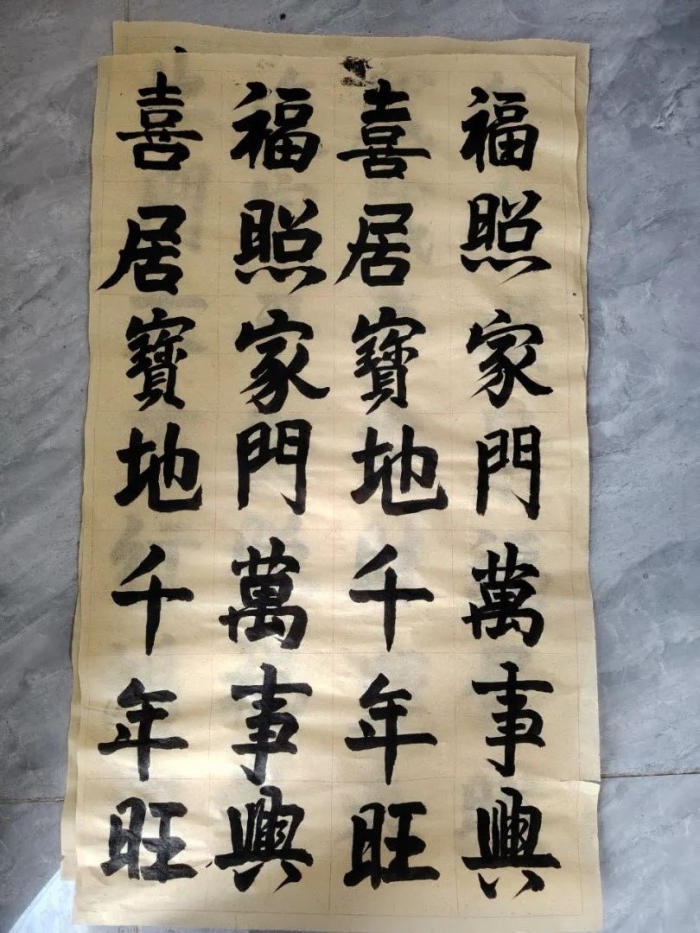 福照家門萬事興
喜居寶地千年旺
福照家門萬事興
喜居寶地千年旺